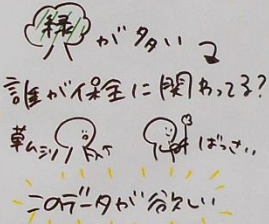 緑が多い
誰が保全に関わってる?
草ムシリ ばっさい
このデータが欲しい